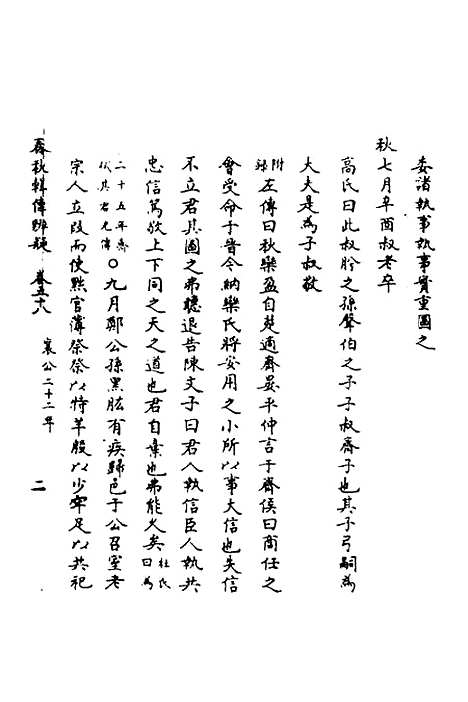 委諸執事執事實重圖之
秋七月辛酉叔老卒
高氏曰此叔肸之孫聲伯之子子叔齊子也其子弓嗣為
大夫是為子叔敬
附錄左傳曰秋欒盈自楚適齊晏平仲言于齊侯曰商任之
會受命于晉今納欒氏將安用之小所以事大信也失信
不立君其圖之弗聽退告陳文子曰君人執信臣人執共
忠信篤敬上下同之天之道也君自棄也弗能久矣杜氏曰為
二十五年齊弒其君光傳○九月鄭公孫黑肱有疾歸邑于公召室老
宗人立段而使黜官薄祭祭以特羊殷以少牢足以共祀
春秋輯傳辨疑 卷五十八 襄公二十二年 二